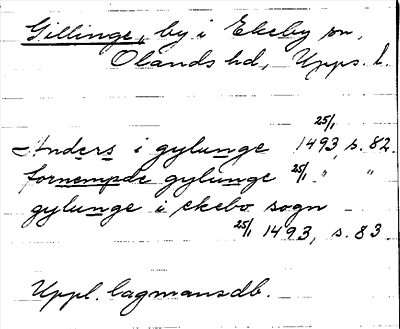 Gillinge, by i Ekeby sn,
Olands hd, Upps. l.
Anders i gylunge 25/1 1493, s. 82.
fornempde gylunge 25/1 " "
gylunge i ekebo sogn
25/1 1493, s. 83
Uppl. lagmansdb.